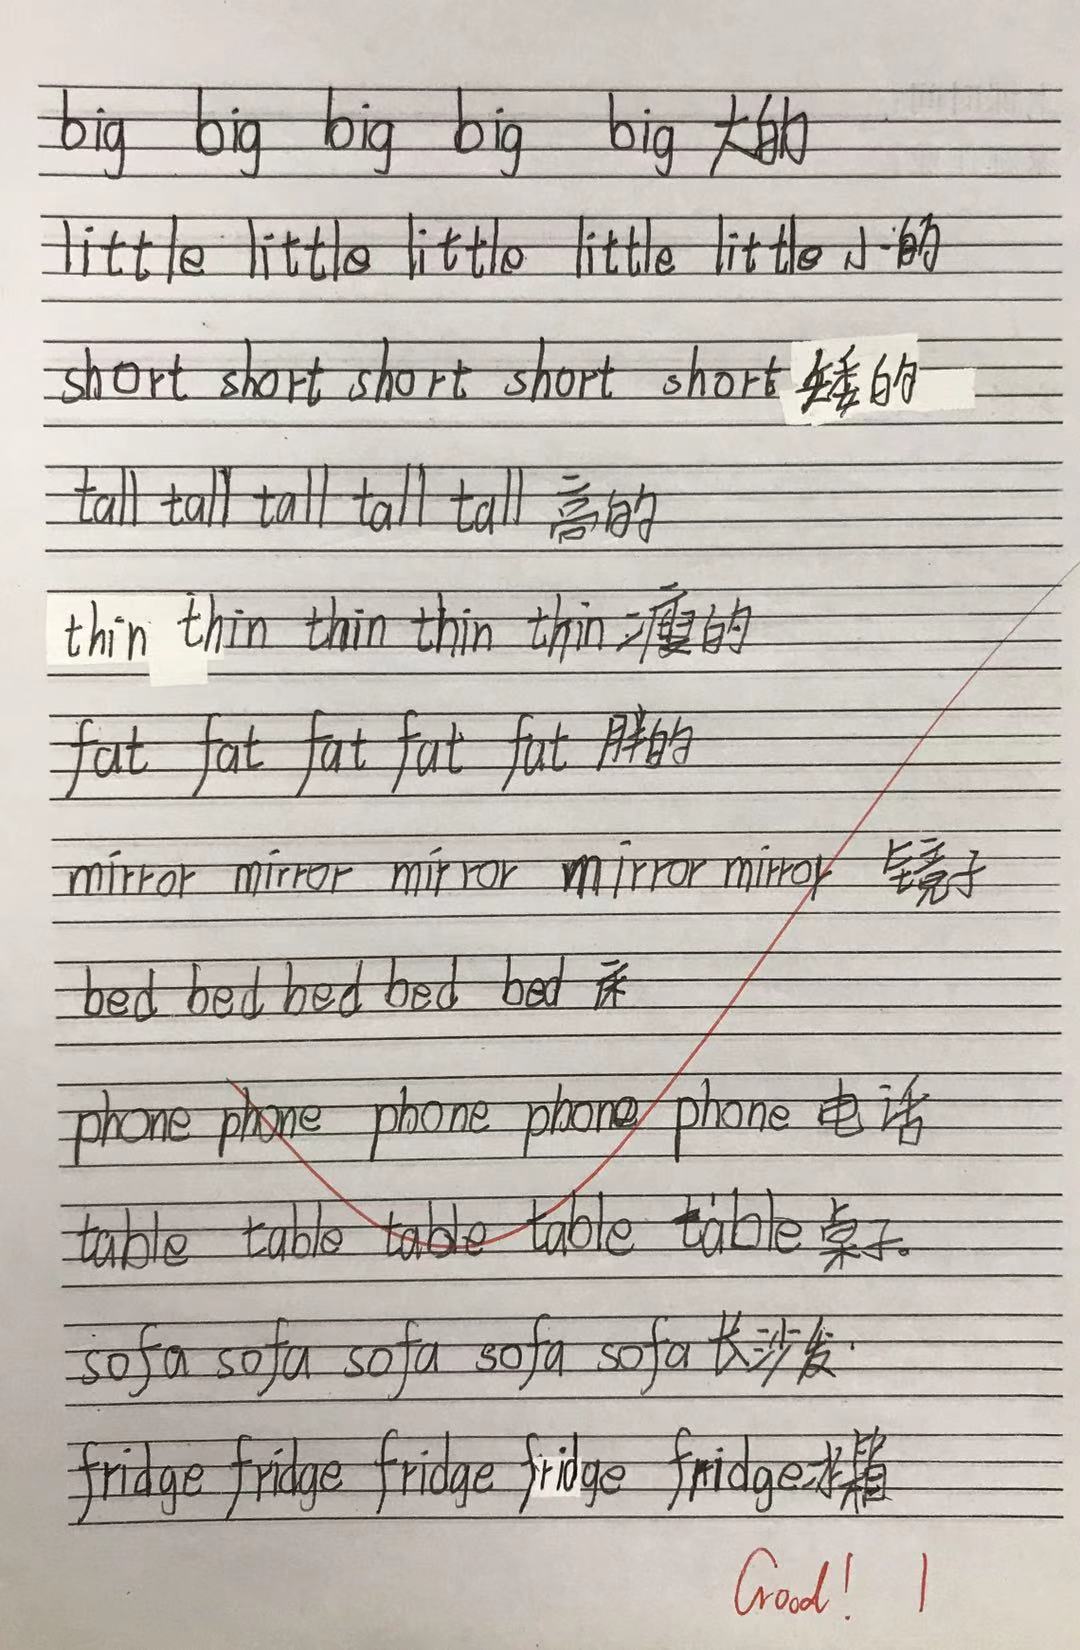 big big big big big 大的
little little little little little 小的
short short short short short 矮的
tall tall tall tall tall 高的
thin thin thin thin thin 瘦的
fat fat fat fat fat 胖的
mirror mirror mirror mirror mirror 镜子
bed bed bed bed bed 床
phone phone phone phone phone 电话
table table table table table 桌子。
sofa sofa sofa sofa sofa 长沙发
fridge fridge fridge fridge fridge 冰箱
Good! 1